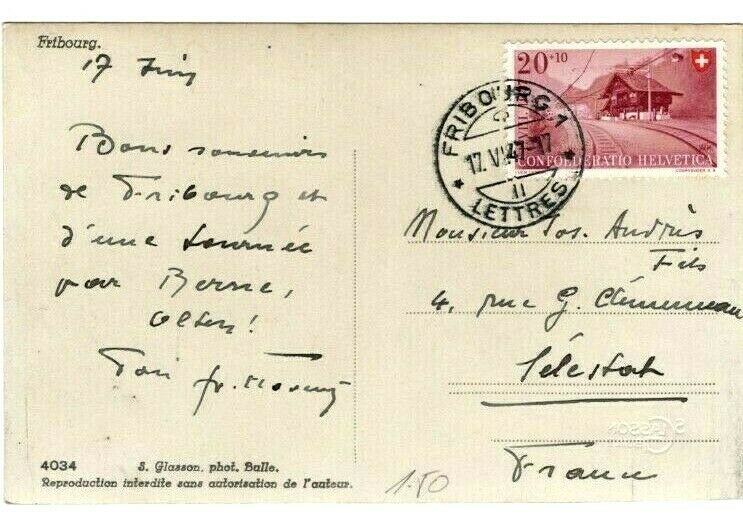 Fribourg.
17 Juin
Bons souvenirs
de Fribourg et
d'une tournée
par Berne,
Olten!
Ton fr.
4034
S. Glasson, phot. Bulle.
Reproduction interdite sans autorisation de l'auteur.
1.50
20+10
CONFOEDERATIO HELVETICA
COURVOISIER S.A.
FRIBOURG 1
17.VI.47-17
LETTRES
Monsieur Jos. Andrès
Fils
4, rue G. Clémenceau
Sélestat
France